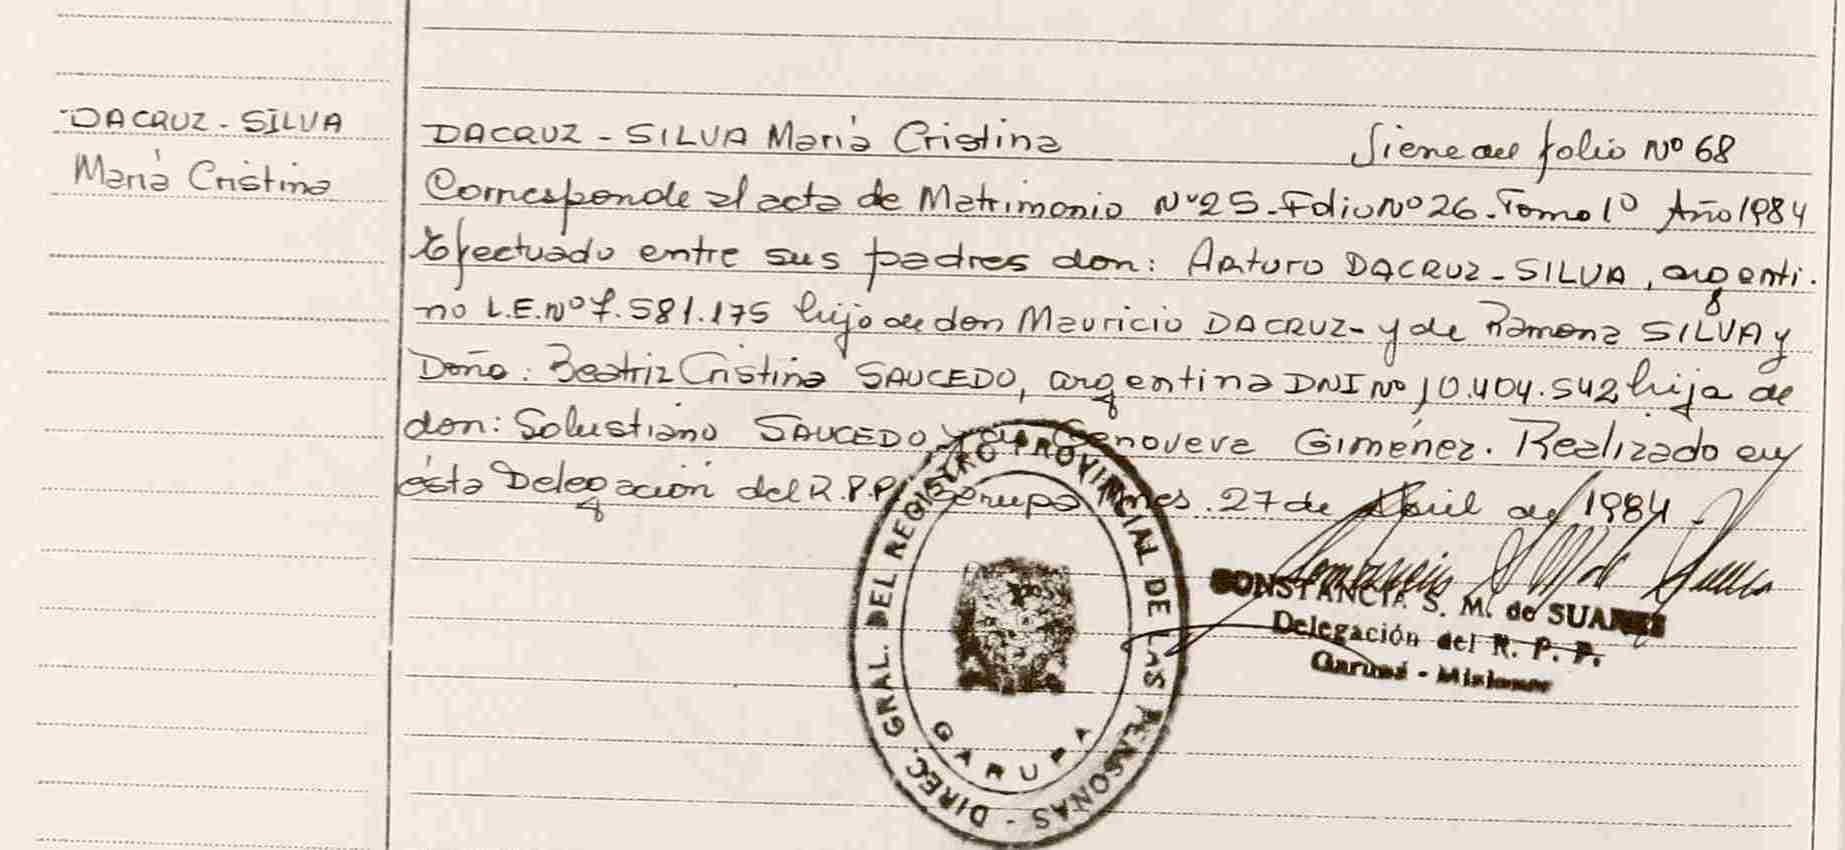 DACRUZ - SILVA
María Cristina
DACRUZ - SILVA María Cristina Viene del folio Nº 68
Corresponde al acta de Matrimonio Nº 25 - Folio Nº 26 - Tomo 1º Año 1984
Efectuado entre sus padres don: Arturo DACRUZ - SILVA, argenti-
no L.E. Nº 7.581.175 hijo de don Mauricio DACRUZ - y de Ramona SILVA y
Doña: Beatriz Cristina SAUCEDO, argentina DNI Nº 10.404.542 hija de
don: Solustiano SAUCEDO y de Genoveva Giménez. Realizado en
ésta Delegación del R.P.P. Garupa Mnes. 27 de Abril de 1984.
DIREC. GRAL. DEL REGISTRO PROVINCIAL DE LAS PERSONAS -
GARUPA
CONSTANCIA S. M. de SUAREZ
Delegación del R. P. P.
Garupá - Misiones